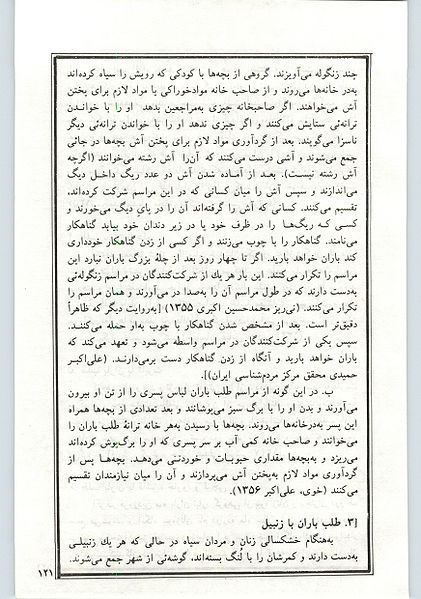 چند زنگوله می‌آویزند. گروهی از بچه‌ها با کودکی که رویش را سیاه کرده‌اند
به‌در خانه‌ها می‌روند و از صاحب خانه مواد‌خوراکی یا مواد لازم برای پختن
آش می‌خواهند. اگر صاحبخانه چیزی به‌مراجعین بدهد او را با خوانـدن
ترانه‌ئی ستایش می‌کنند و اگر چیزی ندهد او را با خواندن ترانه‌ئی دیگر
ناسزا می‌گویند. بعد از گردآوری مواد لازم برای پختن آش بچه‌ها در جائی
جمع می‌شوند و آشی درست می‌کنند که آن‌را آش رشته می‌خوانند (اگرچه
آش رشته نیست). بعـد از آمـاده شدن آش دو عدد ریگ داخـل دیگ
می‌اندازند و سپس آش را میان کسانی که در این مراسم شرکت کرده‌اند،
تقسیم می‌کنند. کسانی که آش را گرفته‌اند آن را در پای دیگ می‌خورند و
کسـی کـه ریگ‌هـا را در ظرف خود یا در زیر دندان خود بیابد گناهکار
می‌نامند. گناهکار را با چوب می‌زنند و اگر کسی از زدن گناهکار خودداری
کند باران خواهد بارید. اگر تا چهار روز بعد از چلهٔ بزرگ باران نبارد این
مراسم را تکرار می‌کنند. این بار هر یك از شرکت‌کنندگان در مراسم زنگوله‌ئی
به‌دست دارند که در طول مراسم آن را به‌صدا در می‌آورند و همان مراسم را
تکرار می‌کنند. (نی‌ریز محمدحسین اکبری ۱۳۵۵) [به‌روایت دیگر که ظاهراً
دقیق‌تر است. بعد از مشخص شدن گناهکار با چوب به‌او حمله می‌کننـد.
سپس یکی از شرکت‌کنندگان در مراسم واسطه می‌شود و تعهد می‌کند که
باران خواهد بارید و آنگاه از زدن گناهکار دست برمی‌دارنـد. (علی‌اکبـر
حمیدی محقق مرکز مردم‌شناسی ایران)].
ب. در این گونه از مراسم طلب باران لباس پسری را از تن او بیرون
می‌آورند و بدن او را با برگ سبز می‌پوشانند و بعد تعدادی از بچه‌ها همراه
این پسر به‌درخانه‌ها می‌روند. بچه‌ها با رسیدن به‌هر خانه ترانهٔ طلب باران را
می‌خوانند و صاحب خانه کمی آب بر سر پسری که او را برگ‌پوش کرده‌اند
می‌ریزد و به‌بچه‌ها مقداری حبوبـات و خوردنـی می‌دهـد. بچه‌هـا پس از
گردآوری مواد لازم به‌پختن آش می‌پردازند و آن را میان نیازمندان تقسیم
می‌کنند (خوی، علی‌اکبر ۱۳۵۶).
[۳. طلب باران با زنبیل
به‌هنگام خشکسالی زنان و مردان سیاه در حالی که هر یك زنبیلـی
به‌دست دارند و کمرشان را با لُنگ بسته‌اند، گوشه‌ئی از شهر جمع می‌شوند.
۱۲۱